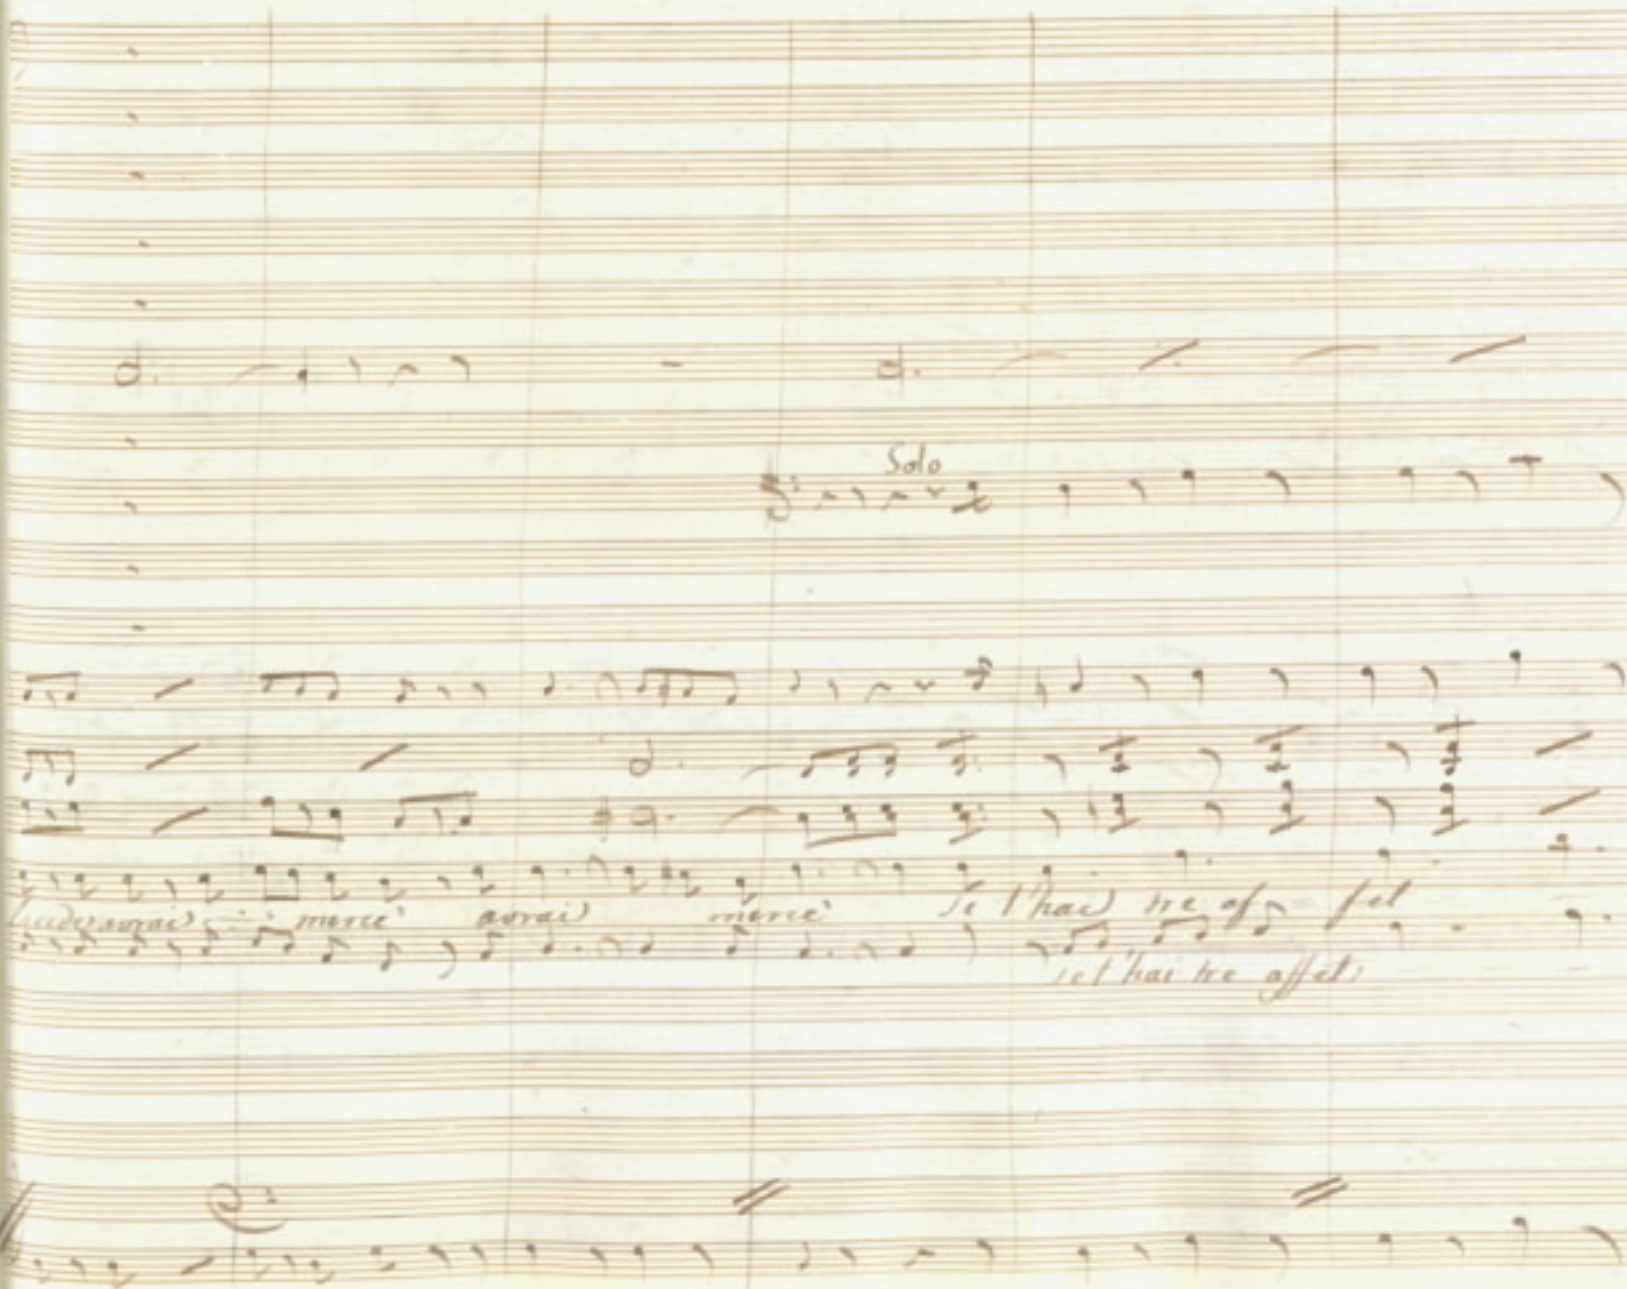 Solo
merce' avrai merce' se l'hai tre af fet
se l'hai tre affet